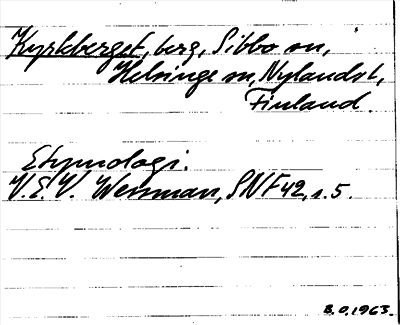 Kyrkberget, berg, Sibbo sn,
Helsinge sn, Nylands l,
Finland.
Etymologi.
V.E.V. Wessman, SNF 42, s. 5.
B.O. 1963.